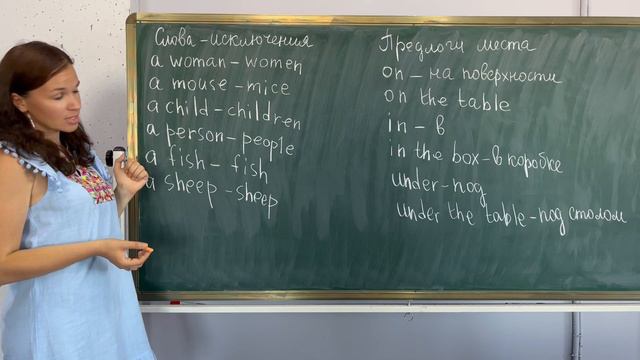 Слова - исключения
a woman - women
a mouse - mice
a child - children
a person - people
a fish - fish
a sheep - sheep
Предлоги места
on - на поверхности
on the table
in - в
in the box - в коробке
under - под
under the table - под столом